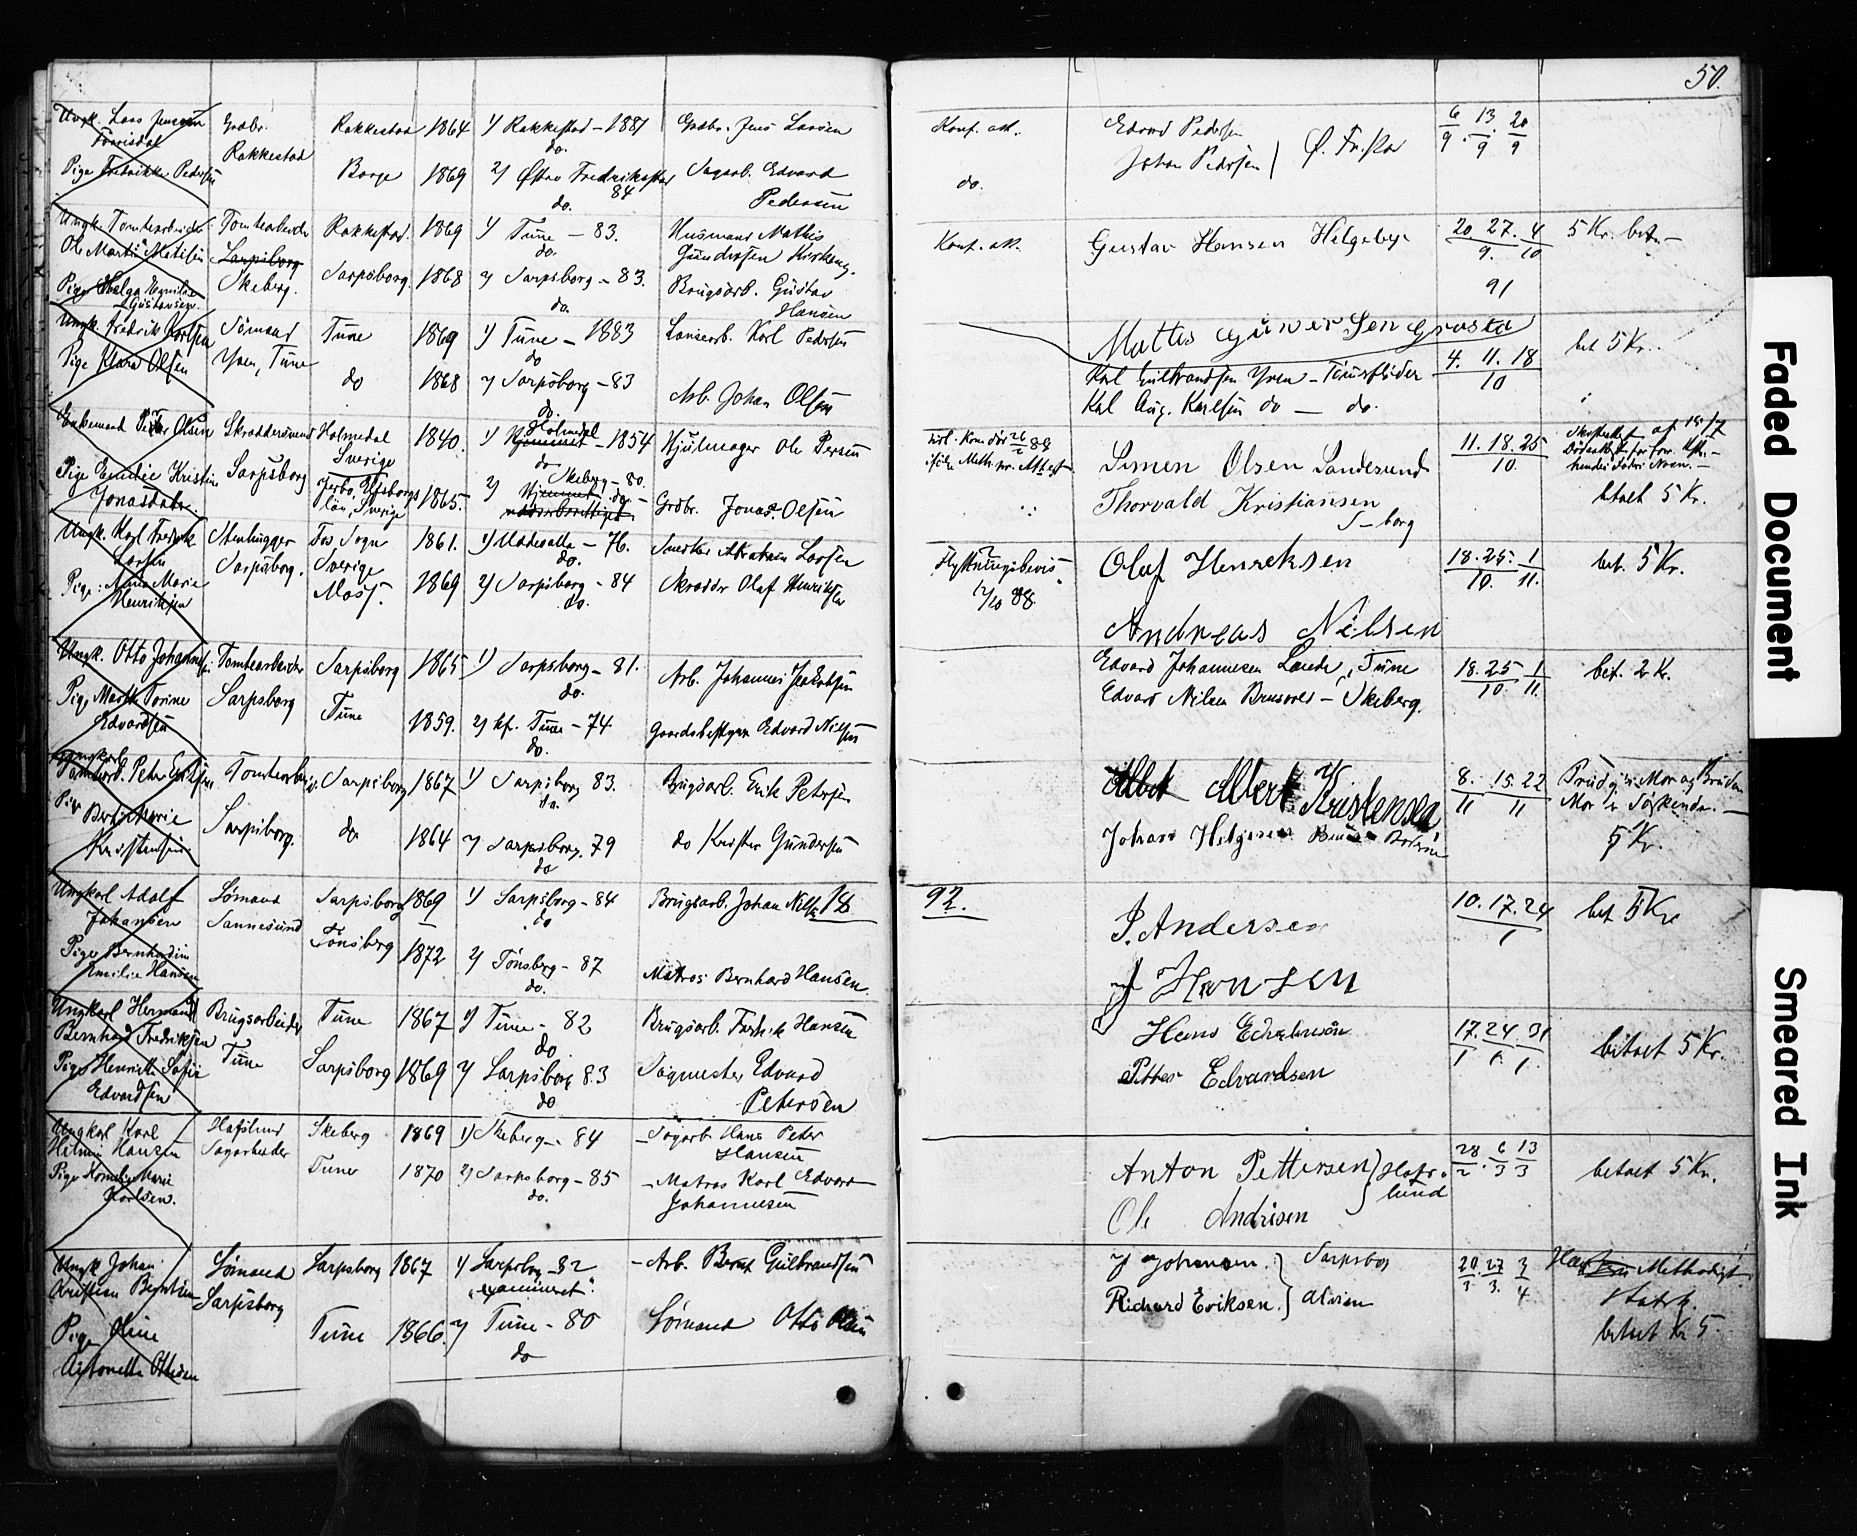 50.
Ungk. Lars Jensen
Gaardbr.
Rakkestad
Rakkestad 1864 1) Rakkestad - 1881
do.
Grdbr. Jens Larsen
Konf. att.
Edvard Pedersen
Johan Pedersen
6 13 20
9 9 9
Pige Fredrikke Pedersen
Borge 1869 2) Østre Fredrikstad
84
do.
Sagarb. Edvard
Pedersen
do.
Ungk. Tomtearbeider
Ole Martin Mathisen
Tomtearbeider
Sarpsborg
Skeberg.
Rakkestad. 1869 1) Tune - 83.
do.
Husmand Mathis
Gundersen
Konf. att.
Gustav Hansen Helgeby
20 27. 4
9. 10
91
5 Kr. bet. -
Pige Helga
Gustavsen
Sarpsborg. 1868 2) Sarpsborg - 83.
do.
Brugsarb. Gustav
Hansen
Ungk. Fredrik Karlsen
Sømand
Yven, Tune
Tune 1869 1) Tune - 1883
do
Karl Pedersen
4. 11. 18
10
bet 5 Kr.
Karl Gulbrandsen Yven
Karl Aug. Karlsen do - do.
Pige Klara Olsen
do 1868 2) Sarpsborg - 83
do.
Arb. Johan Olsen
Enkemand Peter Olsen
Skræddersvend
Sarpsborg
Holmedal
Sverige
1840. 1) Holmedal
- 1854
do
Hjulmager Ole Persen
Simen Olsen Sandesund
Thorvald Kristiansen
S-borg
11. 18. 25
10.
betalt 5 Kr.
Pige Emilie Kristine
Jonasdatter
län, Sverige
1865. 2) Skeberg - 80.
Grdbr. Jonas Olsen
Ungk. Karl Fredrik
Larsen
Stenhugger
Sarpsborg.
Fos Sogn
Sverige
1861. 1) Uddevalla - 76.
do.
Larsen
Flyttningsbevis
Olaf Henreksen
Andreas Nilsen
18. 25. 1
10. 11.
bet. 5 Kr.
Pige Anna Marie
Henriksen
Moss. 1869 2) Sarpsborg - 84
do.
Skrædder Olaf Henriksen
Ungk. Otto Johannesen
Tomtearbeider
Sarpsborg
Sarpsborg 1865 1) Sarpsborg - 81.
do.
Arb. Johannes Jakobsen
Edvard Johannesen Lande, Tune
Edvard Nilsen Brusevold - Skeberg.
18. 25 1
10. 11.
bet. 2 Kr.
Pige Marthe Torine
Edvardsen
Tune 1859. 2) kf. Tune - 74.
do.
Gaardsbestyrer Edvard Nilsen
Ungkarl
Tomtearb. Peter Eriksen
Tomtearbeider
Sarpsborg.
Sarpsborg 1867 1) Sarpsborg 83.
do.
Brugsarb. Erik Petersen
Albet Albert Kristensen
Johan Helgesen
8. 15. 22
11 11
Brudg.s Mor og Brudens
Mor er Søskende. -
5 Kr.
Pige
Berte Marie
Kristensen
do 1864 2) Sarpsborg. 79
do
do Krister Gundersen
Ungkarl Adolf
Johansen
Sømand
Sannesund
Sarpsborg 1869 1) Sarpsborg - 84
do
Brugsarb. Johan Nilsen
18 92.
P. Andersen
J Hansen
10. 17. 24
1
bet 5 Kr
Pige Bernhardine
Emilie Hansen
Tønsberg 1872 2) Tønsberg - 87
do.
Matros Bernhard Hansen.
Ungkarl Herman
Bernhard Fredriksen
Brugsarbeider
Tune
Tune 1867 1) Tune - 82
do
Brugsarb. Fredrik Hansen
Petter Edvardsen
17. 24. 31
1 1. 1.
betalt 5 Kr.
Pige Henriette Sofie
Edvardsen
Sarpsborg 1869 2) Sarpsborg 83
do
Sagmester Edvard
Petersen
Ungkarl Karl
Hilmar Hansen
Hafslund
Sagarbeider
Skeberg 1869 1) Skeberg - 84
- Sagarb. Hans Peter
Hansen
Anton Pettersen
Ole Andrisen
Hafs-
lund
28 6 13
2 3 3
betalt 5 Kr.
Pige Marie
Karlsen.
Tune 1870 2) Sarpsborg - 85
do.
- Matros Karl Edvard
Johannesen
Ungk Johan
Kristian Berntsen
Sømand
Sarpsborg
Sarpsborg 1867 1) Sarpsborg - 82
- Arb. Bernt Gulbrandsen
J Johansen. Sarpsborg
Richard Eriksen.
20. 27 3
3. 3. 4
Methodist
betalt Kr 5.
Pige Oline
Antonette Ottesen
Tune 1866. 2) Tune - 80
do
Sømand Otto Olsen
Faded Document
Smeared Ink